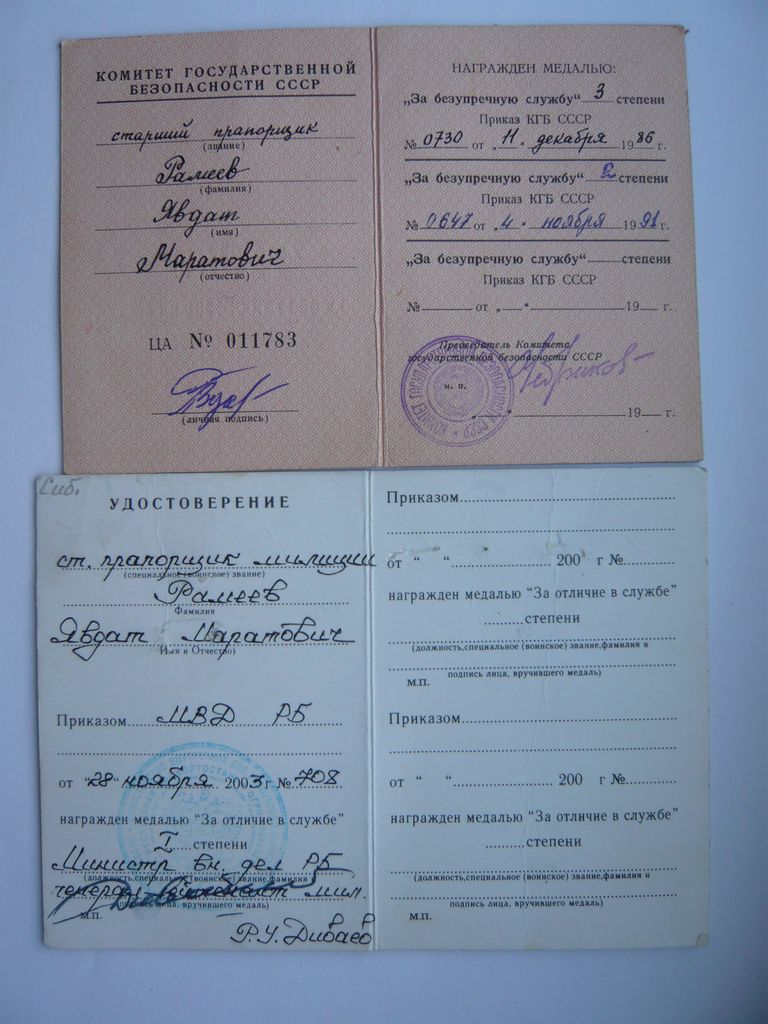 КОМИТЕТ ГОСУДАРСТВЕННОЙ
БЕЗОПАСНОСТИ СССР
старший прапорщик
(звание)
Рамеев
(фамилия)
Явдат
(имя)
Маратович
(отчество)
ЦА № 011783
(личная подпись)
НАГРАЖДЕН МЕДАЛЬЮ:
„За безупречную службу“ 3 степени
Приказ КГБ СССР
№ 0730 от „11“ декабря 1986 г.
„За безупречную службу“ 2 степени
Приказ КГБ СССР
№ 0647 от „4“ ноября 1991 г.
„За безупречную службу“ степени
Приказ КГБ СССР
№ от „ “ 19 г.
Председатель Комитета
государственной безопасности СССР
м. п.
„ “ 19 г.
Сиб.
УДОСТОВЕРЕНИЕ
ст. прапорщик милиции
(специальное (воинское) звание)
Рамеев
Фамилия
Явдат Маратович
Имя и Отчество)
Приказом МВД РБ
от "28" ноября 2003 г № 708
награжден медалью "За отличие в службе"
I степени
Министр вн. дел РБ
(должность,специальное (воинское) звание,фамилия и
генерал-лейтенант мил.
подпись лица, вручившего медаль)
М.П.
Р.У.Диваев
Приказом
от " " 200 г №
награжден медалью "За отличие в службе"
степени
(должность,специальное (воинское) звание,фамилия и
подпись лица, вручившего медаль)
М.П.
Приказом
от " " 200 г №
награжден медалью "За отличие в службе"
степени
(должность,специальное (воинское) звание,фамилия и
подпись лица, вручившего медаль)
М.П.